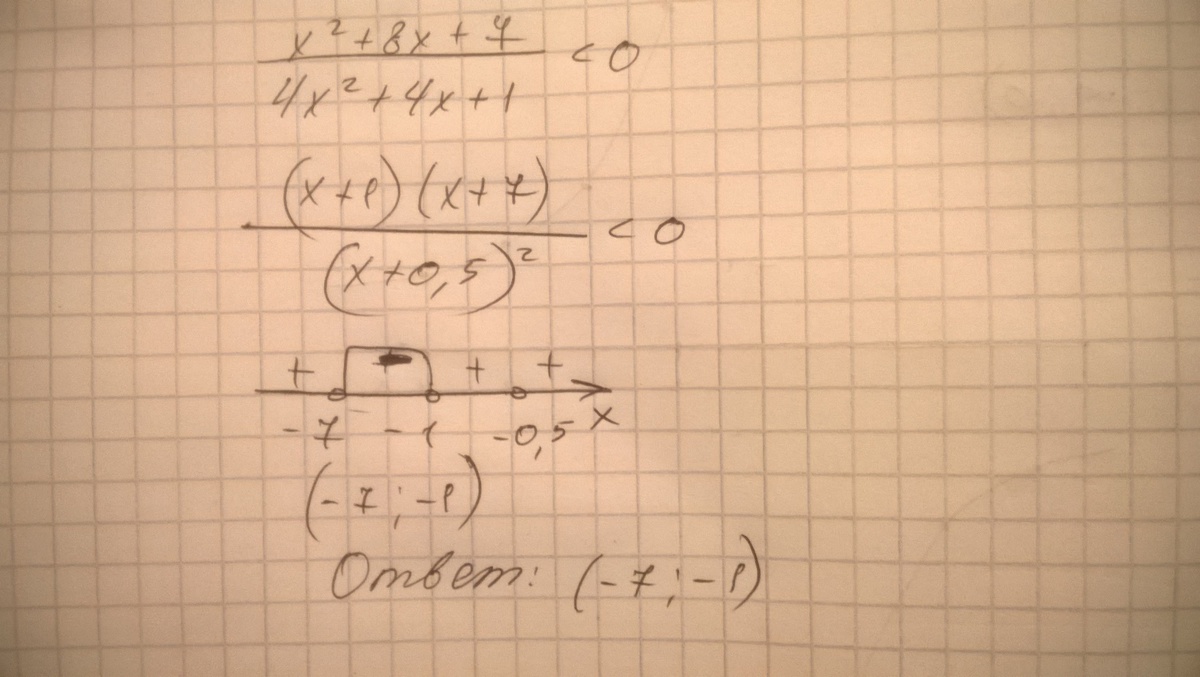 x² + 8x + 7
< 0
4x² + 4x + 1
(x + 1) (x + 7)
< 0
(x + 0,5)²
+ - + +
-7 -1 -0,5 x
(-7 ; -1)
Ответ: (-7 ; -1)